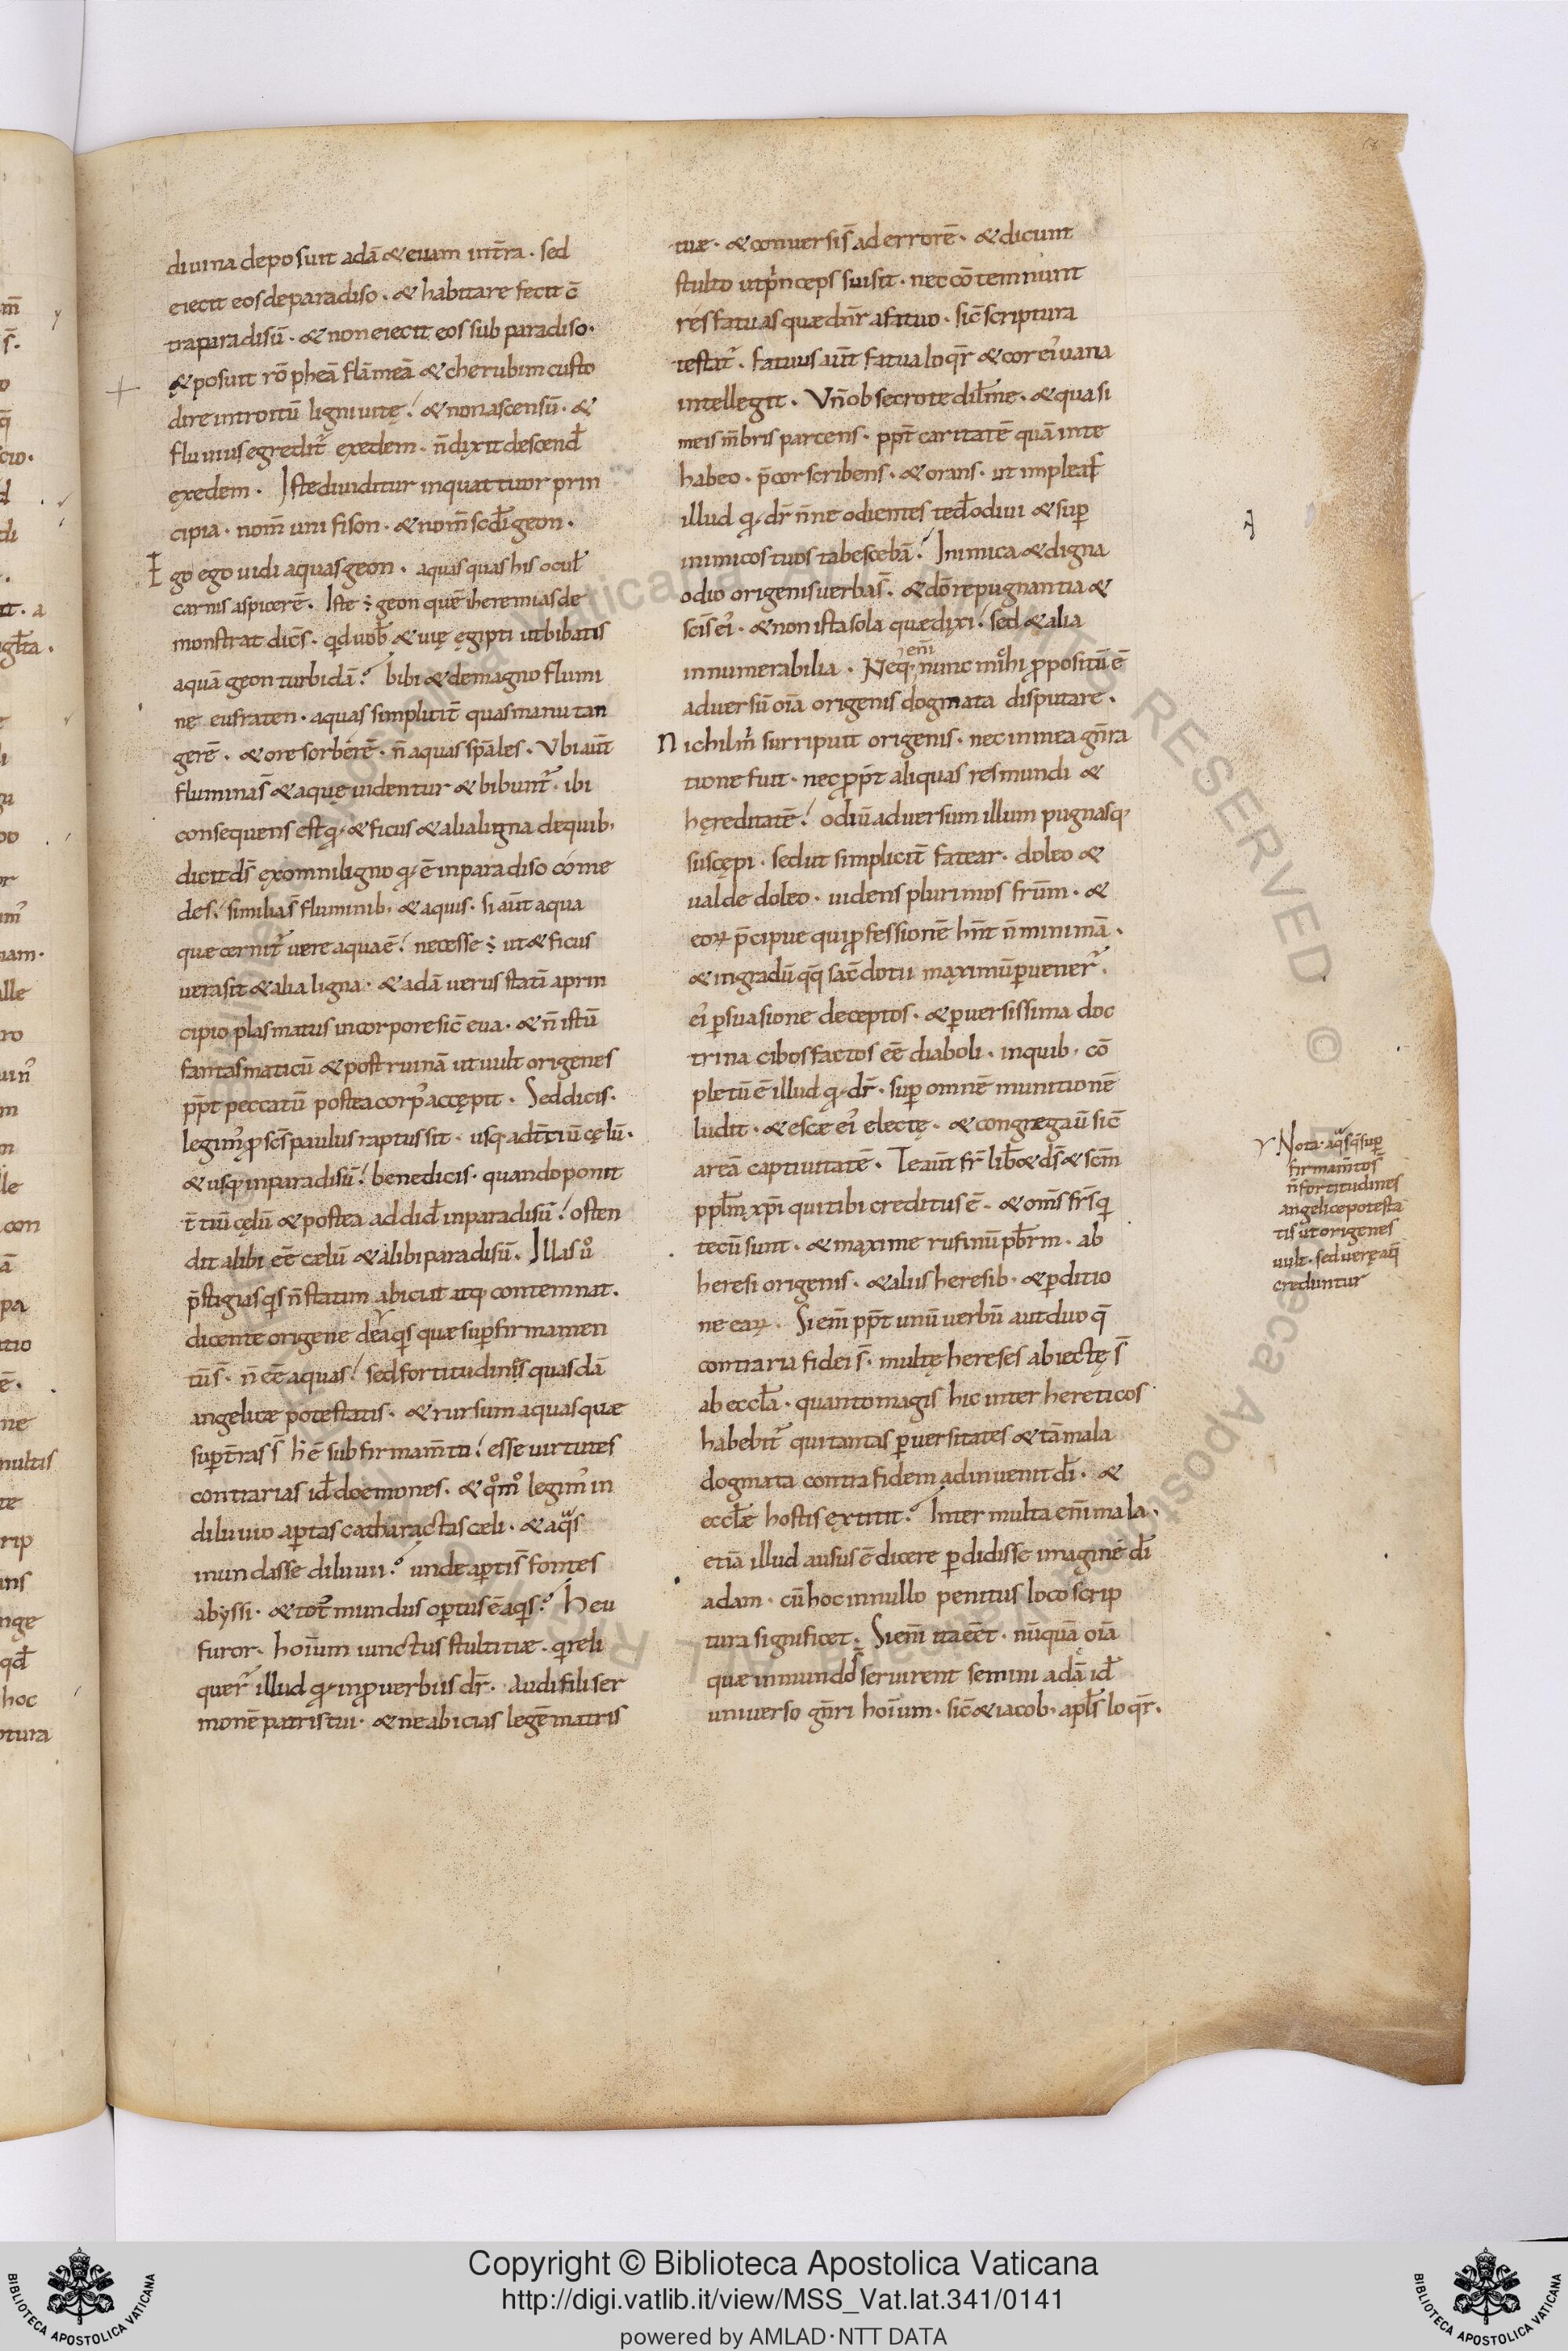 diuina deposuit adā & euam int̄ra · sed
eiecit eos de paradiso · & habitare fecit c̄
tra paradisū · & non eiecit eos sub paradiso·
& posuit rōpheā flāmeā & cherubim custo
dire introitū ligni uitę & non ascensū · &
fluuius egredit̄ ex edem · n̄ dixit descend̄
ex edem · Iste diuiditur in quattuor prin
cipia · nom̄ uni fison · & nom̄ scd̄i geon ·
Ego ego uidi aquas geon · aquas quas his ocul̄
carnis aspicerē · Iste ÷ geon quē iheremias de
monstrat dic̄s · qd uob̄ & uię ęgipti ut bibatis
aquā geon turbidā? bibi & de magno flumi
ne eufraten · aquas simplicit̄ quas manu tan
gerē · & ore sorberē · n̄ aquas sp̄ales · Vbi aūt
flumina s̄ & aquę uidentur & bibunt̄ · ibi
consequens est q; & ficus & alia ligna de quib;
dicit d̄s ex omni ligno q; ē in paradiso come
des · similia s̄ fluminib; & aquis · si aūt aqua
que cernit̄ uere aqua ē necesse ÷ ut & ficus
uera sit & alia ligna · & adā uerus statī a prin
cipio plasmatus in corpore sic̄ eua · & n̄ istū
fantasmaticū & post ruinā ut uult origenes
pp̄t peccatū postea corp' accępit · Sed dicis·
legim' q; sc̄s paulus raptus sit · usq; ad t̄tiū cęlū·
& usq; in paradisū benedicis · quando ponit
t̄tiū cęlū & postea addid̄ in paradisū osten
dit alibi eē cælū & alibi paradisū · Illas ů
p̄stigias qis n̄ statim abiciat itq; contemnat ·
dicente origene de aqis quæ sup firmamen
tū s̄ · n̄ eē aquas sed fortitudinis quasdā
angelicæ potestatis · & rursum aquas quæ
sup t̄ras s̄ h̄ ē sub firmam̄to esse uirtutes
contrarias id̄ doemones · & qom̊ legim' in
diluuio apertas catharactas cæli · & aqas
inundasse diluuii? unde aptis̄ fontes
abyssi · & tot' mundus optus ē aqis? Heu
furor · hoīum iunctus stultitiæ · qi reli
quer̄ illud q; in puerbiis dr̄ · Audi fili ser
monē patris tui · & ne abicias legē matris
tuæ · & conuersi s̄ ad errorē · & dicunt
stulto ut p̄nceps sui sit · nec cōtemnunt
res fatuas quæ dn̄r a fatuo · sic̄ scriptura
testat̄ · fatuus aūt fatua loqr̄ & cor ei' uana
intellegit · Vn̄ obsecro te dil̄me · & quasi
meis m̄bris parcens · pp̄t caritatē quā in te
habeo · p̄cor scribens · & orans · ut impleas̄
illud q; dr̄ n̄ne odientes te d̄ odiui & sup
inimicos tuos tabescebā? Inimica & digna
odio origenis uerba s̄ · & dō repugnantia &
sc̄is ei' · & non ista sola quæ dixi sed & alia
innumerabilia · Neq; em̄ nunc m̊hi ppositū ē
aduersū oīa origenis dogmata disputare ·
Nichil m̄ surripuit origenis · nec in mea gn̄ra
tione fuit · nec pp̄t aliquas res mundi &
hęreditatē odiū aduersum illum pugnasq;
suscępi · sed ut simplicit̄ fatear · doleo &
ualde doleo · uidens plurimos fr̄um · &
eoꝝ p̄cipue qui pfessionē hn̄t n̄ minimā ·
& in gradū qq̄ sac̄dotii maximū puener̄ ·
ei' psuasione deceptos · & puersissima doc
trina cibos factos eē diaboli · in quib; cō
pletū ē illud q; dr̄ · sup omnē munitionē
ludit · & escæ ei' electę · & congregauī sic̄
areā captiuitatē · Te aūt fr̄ liber& d̄s & sc̄m
ppl̄m xp̄i qui tibi creditus ē · & om̄s fr̄s qi
tecū sunt · & maxime rufinū pb̄rm · ab
heresi origenis · & aliis heresib; & pditio
ne eaꝝ · Si em̄ pp̄t unū uerbū aut duo q̄
contraria fidei s̄ · multę hereses abiectę s̄
ab eccl̄a · quanto magis hic inter hereticos
habebit̄ qui tantas puersitates & tā mala
dogmata contra fidem adinuenit dī · &
eccl̄æ hostis extitit? Inter multa em̄ mala ·
etiā illud ausus ē dicere pdidisse imaginē dī
adam · cū hoc in nullo penitus loco scrip
tura significet · Si em̄ ita eēt · nūquā oīa
quæ in mundo s̄ seruirent semini adā id̄
uniuerso gn̄ri hoīum · sic̄ & iacob; apl̄s loqr̄ ·
Nota · aqas q̄ sup
firmam̄to s̄
n̄ fortitudines
angelice potesta
tis ut origenes
uult · sed uerę aq̄
creduntur
Copyright © Biblioteca Apostolica Vaticana
http://digi.vatlib.it/view/MSS_Vat.lat.341/0141
powered by AMLAD·NTT DATA
BIBLIOTECA APOSTOLICA VATICANA
BIBLIOTECA APOSTOLICA VATICANA